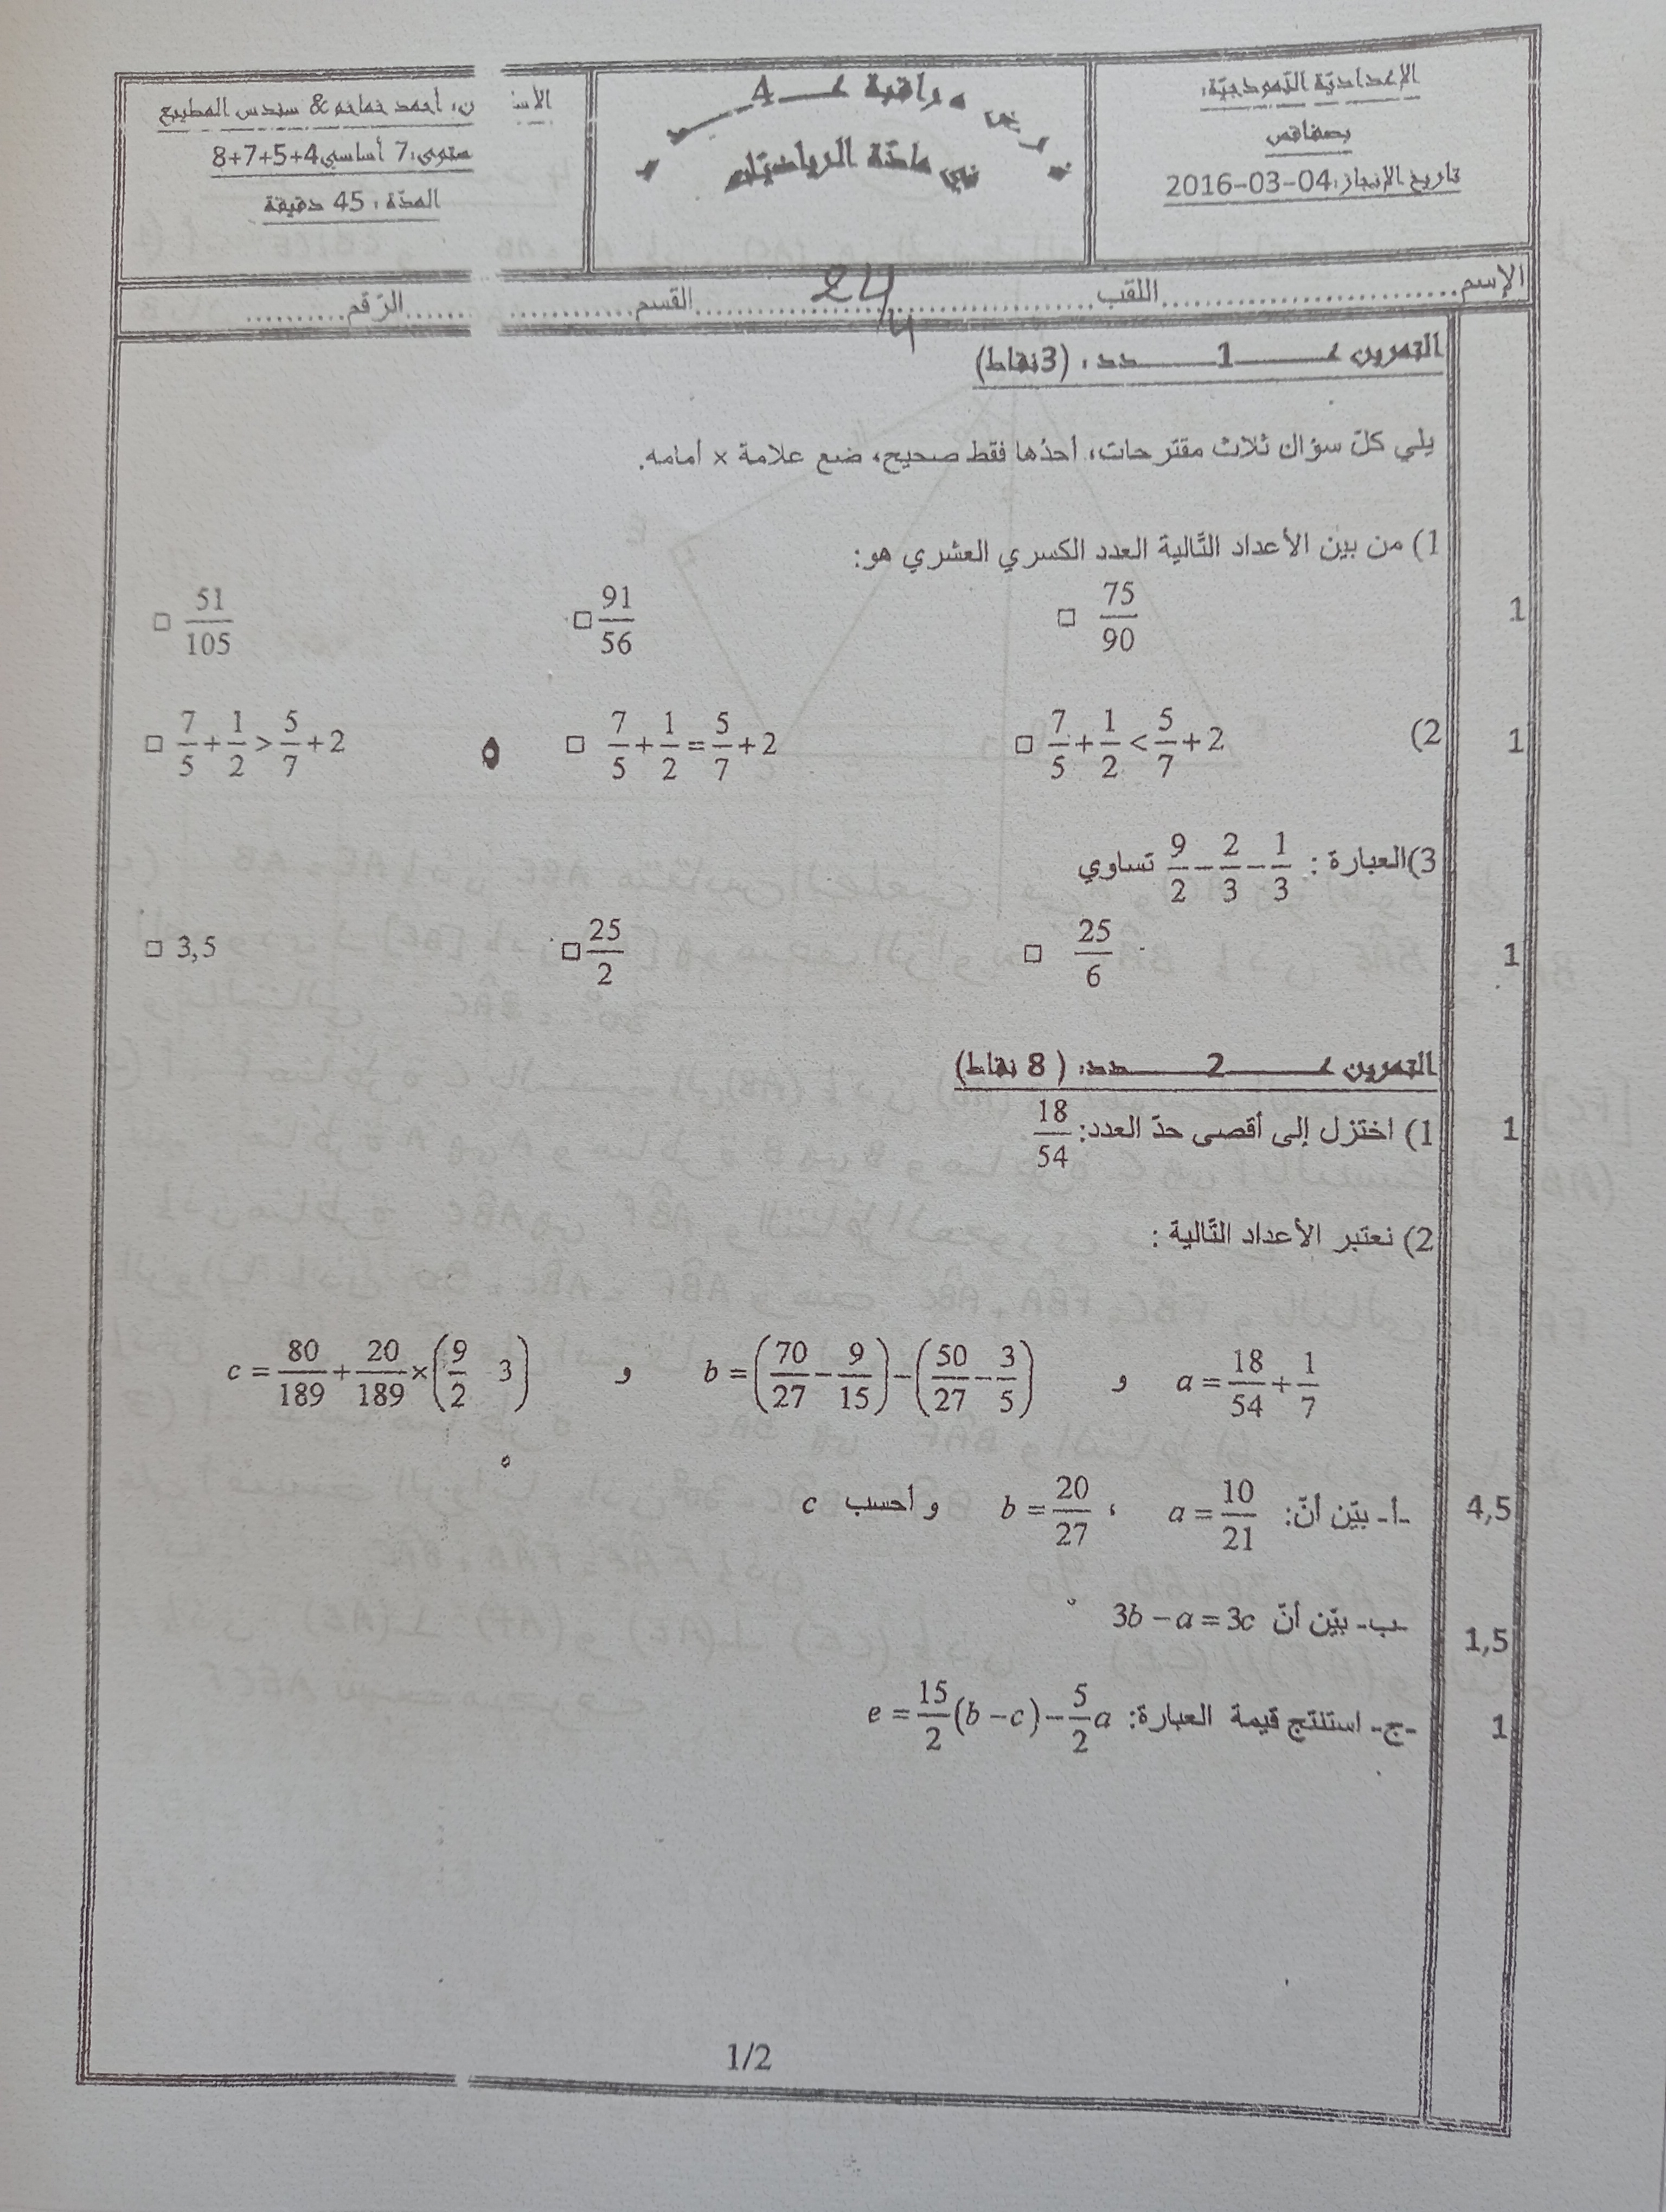 الإعداديّة النّموذجيّة:
بصفاقس
تاريخ الإنجاز: 04-03-2016
مراقبة عـ4ـدد
في مادّة الرياضيّات
الأستاذان: أحمد خماخم & سندس المطيبع
مستوى: 7 أساسي 4+5+7+8
المدّة: 45 دقيقة
الإسم.......................اللقب.......................القسم.......................الرّقم..........
24/4
التمرين عـ1ـدد: (3 نقاط)
يلي كلّ سؤال ثلاث مقترحات، أحدُها فقط صحيح، ضع علامة × أمامه.
1) من بين الأعداد التّالية العدد الكسري العشري هو:
□ 75/90 □ 91/56 □ 51/105
1
2) □ 7/5 + 1/2 < 5/7 + 2 □ 7/5 + 1/2 = 5/7 + 2 □ 7/5 + 1/2 > 5/7 + 2
1
3) العبارة : 9/2 − 2/3 − 1/3 تساوي
□ 25/6 □ 25/2 □ 3,5
1
التمرين عـ2ـدد: (8 نقاط)
1) اختزل إلى أقصى حدّ العدد: 18/54
1
2) نعتبر الأعداد التّالية :
a = 18/54 + 1/7 و b = (70/27 − 9/15) − (50/27 − 3/5) و c = 80/189 + 20/189 × (9/2 3)
-أ- بيّن أنّ: a = 10/21 ، b = 20/27 و أحسب c
4,5
-ب- بيّن أنّ 3b − a = 3c
1,5
-ج- استنتج قيمة العبارة: e = 15/2 (b − c) − 5/2 a
1
1/2